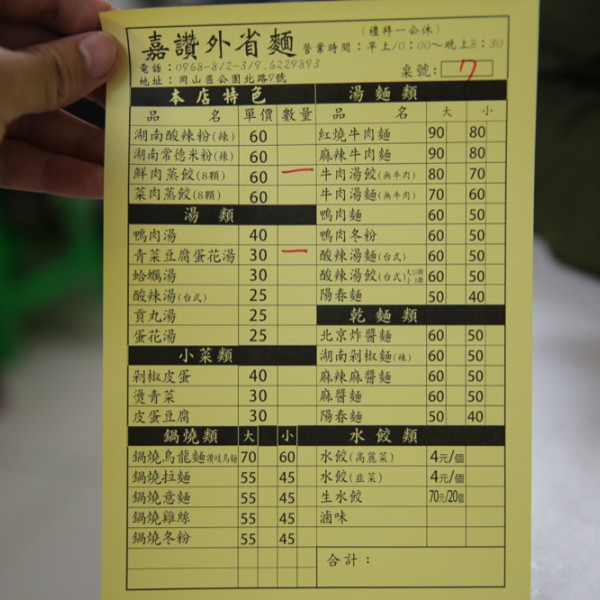 嘉讚外省麵
(禮拜一公休)
營業時間：早上10：00~晚上8：30
電話：0968-812-319.6229893
地址：岡山區公園北路9號
桌號：7
本店特色
品 名 單價 數量
湖南酸辣粉(辣) 60
湖南常德米粉(辣) 60
鮮肉蒸餃(8顆) 60 一
菜肉蒸餃(8顆) 60
湯 類
鴨肉湯 40
青菜豆腐蛋花湯 30 一
蛤蠣湯 30
酸辣湯(台式) 25
貢丸湯 25
蛋花湯 25
小菜類
剁椒皮蛋 40
燙青菜 30
皮蛋豆腐 30
鍋燒類 大 小
鍋燒烏龍麵 讚岐烏麵 70 60
鍋燒拉麵 55 45
鍋燒意麵 55 45
鍋燒雞絲 55 45
鍋燒冬粉 55 45
湯麵類
品 名 大 小
紅燒牛肉麵 90 80
麻辣牛肉麵 90 80
牛肉湯餃(無牛肉) 80 70
牛肉湯麵(無牛肉) 70 60
鴨肉麵 60 50
鴨肉冬粉 60 50
酸辣湯麵(台式) 60 50
酸辣湯餃(台式) 60 50
陽春麵 50 40
乾麵類
北京炸醬麵 60 50
湖南剁椒麵(辣) 60 50
麻辣麻醬麵 60 50
麻醬麵 60 50
陽春麵 50 40
水餃類
水餃(高麗菜) 4元/個
水餃(韭菜) 4元/個
生水餃 70元/20個
滷味
合計：